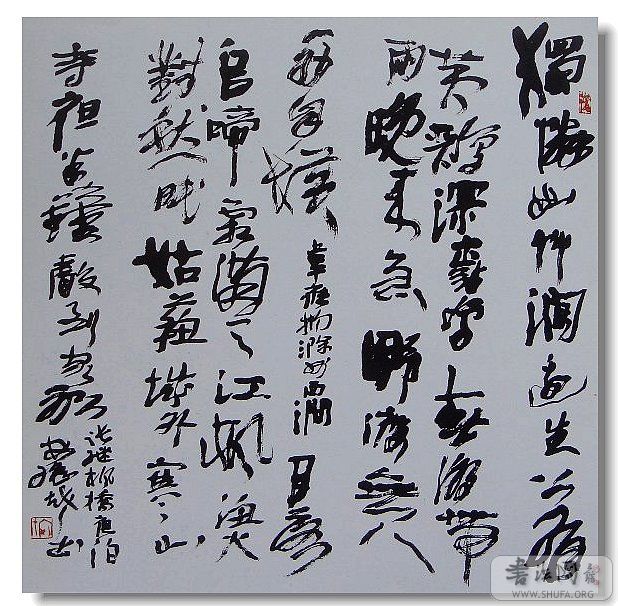 獨憐幽草澗邊生上有
黃鸝深處鳴春潮帶
雨晚來急野渡無人
舟自橫 韋應物滁州西澗 月落
烏啼霜滿天江楓漁火
對愁眠姑蘇城外寒山
寺夜半鐘聲到客船
張繼楓橋夜泊
WWW.SHUFA.ORG